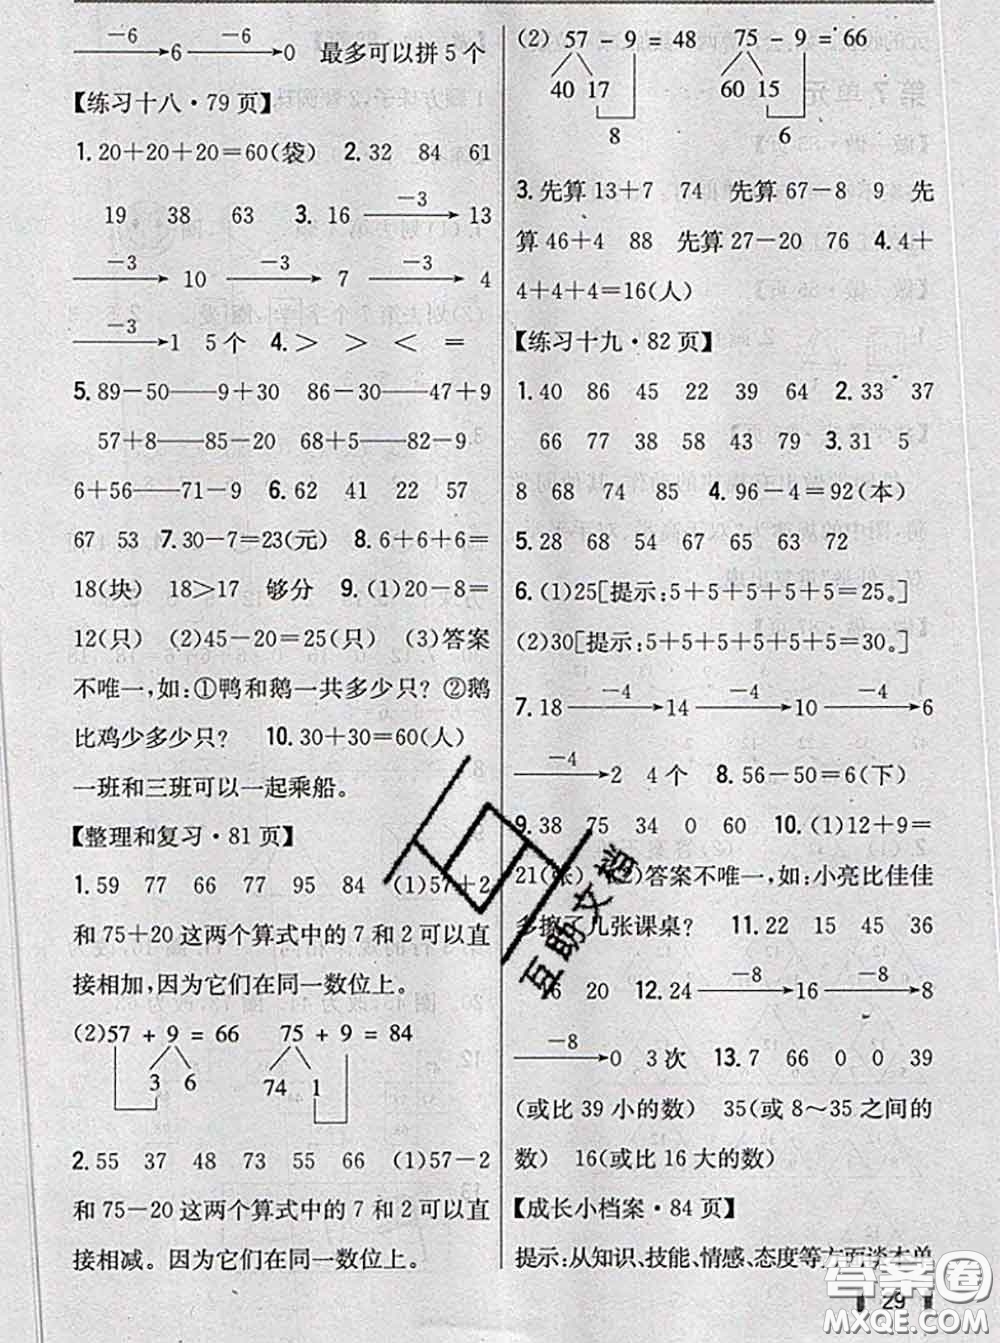 −6 6 −6 0 最多可以拼5个
【练习十八·79页】
1.20+20+20=60(袋) 2.32 84 61
19 38 63 3.16 −3 13
−3 10 −3 7 −3 4
−3 1 5个 4.> > < =
5.89−50——9+30 86−30——47+9
57+8——85−20 68+5——82−9
6+56——71−9 6.62 41 22 57
67 53 7.30−7=23(元) 8.6+6+6=
18(块) 18>17 够分 9.(1)20−8=
12(只) (2)45−20=25(只) (3)答案
不唯一,如:①鸭和鹅一共多少只? ②鹅
比鸡少多少只? 10.30+30=60(人)
一班和三班可以一起乘船。
【整理和复习·81页】
1.59 77 66 77 95 84 (1)57+2
和75+20这两个算式中的7和2可以直
接相加,因为它们在同一数位上。
(2)57+9=66 75+9=84
3 6 74 1
2.55 37 48 73 55 66 (1)57−2
和75−20这两个算式中的7和2可以直
接相减。因为它们在同一数位上。
(2) 57−9=48 75−9=66
40 17 60 15
8 6
3.先算13+7 74 先算67−8 9 先
算46+4 88 先算27−20 76 4.4+
4+4+4=16(人)
【练习十九·82页】
1.40 86 45 22 39 64 2.33 37
66 77 38 58 43 79 3.31 5
8 68 74 85 4.96−4=92(本)
5.28 68 54 67 65 63 72
6.(1)25[提示:5+5+5+5+5=25。]
(2)30[提示:5+5+5+5+5+5=30。]
7.18 −4 14 −4 10 −4 6
−4 2 4个 8.56−50=6(下)
9.38 75 34 0 60 10.(1)12+9=
21(张) (2)答案不唯一,如:小亮比佳佳
多擦了几张课桌? 11.22 15 45 36
6 20 12.24 −8 16 −8 8
−8 0 3次 13.7 66 0 0 39
(或比39小的数) 35(或8～35之间的
数) 16(或比16大的数)
【成长小档案·84页】
提示:从知识、技能、情感、态度等方面谈本单
29
互助文档
答案圈
MXQE.COM